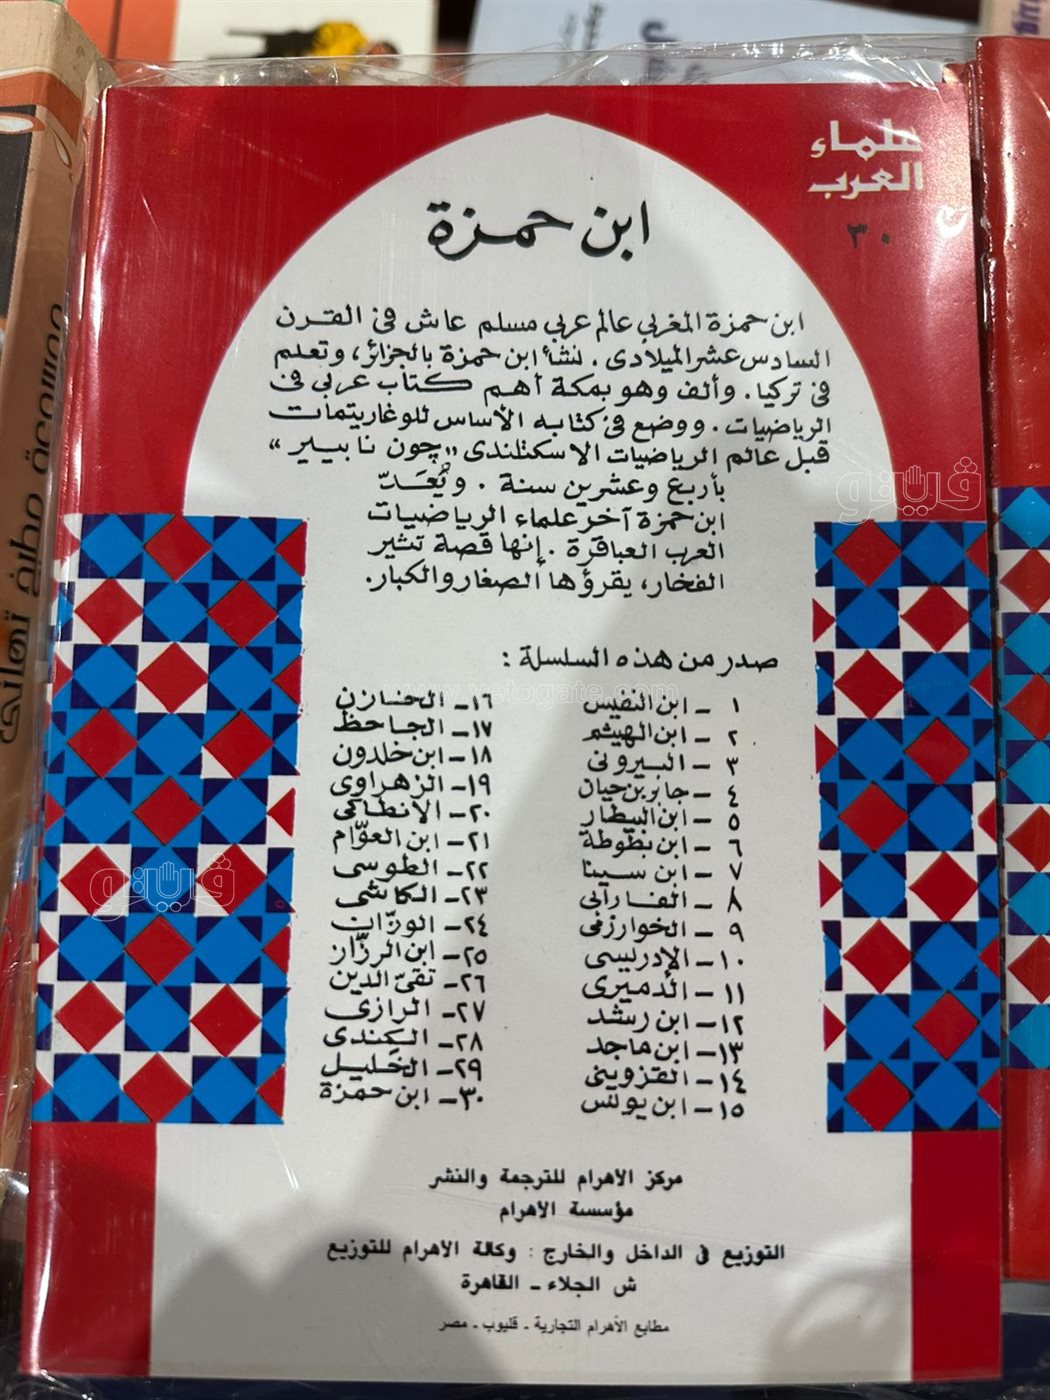 علماء
العرب
٣٠
ابن حمزة
ابن حمزة المغربي عالم عربي مسلم عاش في القرن
السادس عشر الميلادي. نشأ ابن حمزة بالجزائر، وتعلم
في تركيا. وألف وهو بمكة أهم كتاب عربي في
الرياضيات. ووضع في كتابه الأساس للوغاريتمات
قبل عالم الرياضيات الاسكتلندي "چون نابيير"
بأربع وعشرين سنة. ويُعَدّ
ابن حمزة آخر علماء الرياضيات
العرب العباقرة. إنها قصة تثير
الفخار، يقرؤها الصغار والكبار.
صدر من هذه السلسلة:
١ - ابن النفيس
٢ - ابن الهيثم
٣ - البيروني
٤ - جابر بن حيان
٥ - ابن البيطار
٦ - ابن بطوطة
٧ - ابن سينا
٨ - الفارابي
٩ - الخوارزمي
١٠ - الإدريسي
١١ - الدميري
١٢ - ابن رشد
١٣ - ابن ماجد
١٤ - القزويني
١٥ - ابن يونس
١٦ - الخازن
١٧ - الجاحظ
١٨ - ابن خلدون
١٩ - الزهراوي
٢٠ - الأنطاكي
٢١ - ابن العوّام
٢٢ - الطوسي
٢٣ - الكاشي
٢٤ - الوزّان
٢٥ - ابن الرزّاز
٢٦ - تقيّ الدين
٢٧ - الرازي
٢٨ - الكندي
٢٩ - الخليل
٣٠ - ابن حمزة
مركز الأهرام للترجمة والنشر
مؤسسة الأهرام
التوزيع في الداخل والخارج : وكالة الأهرام للتوزيع
ش الجلاء - القاهرة
مطابع الأهرام التجارية - قليوب - مصر
ڤيتو
ڤيتو
www.vetogate.com